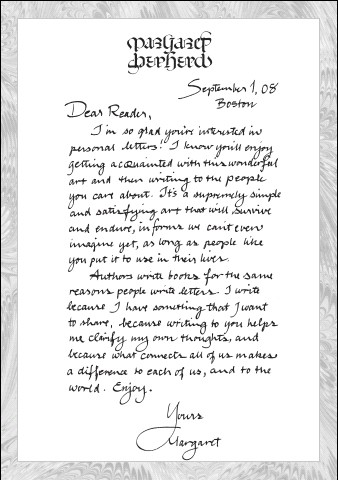 Margaret
Shepherd
September 1, 08
Boston
Dear Reader,
I'm so glad you're interested in
personal letters! I know you'll enjoy
getting acquainted with this wonderful
art and then writing to the people
you care about. It's a supremely simple
and satisfying art that will survive
and endure, in forms we can't even
imagine yet, as long as people like
you put it to use in their lives.
Authors write books for the same
reasons people write letters. I write
because I have something that I want
to share, because writing to you helps
me clarify my own thoughts, and
because what connects all of us makes
a difference to each of us, and to the
world. Enjoy.
Yours
Margaret